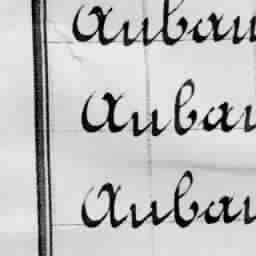 Aubau
Aubau
Aubau